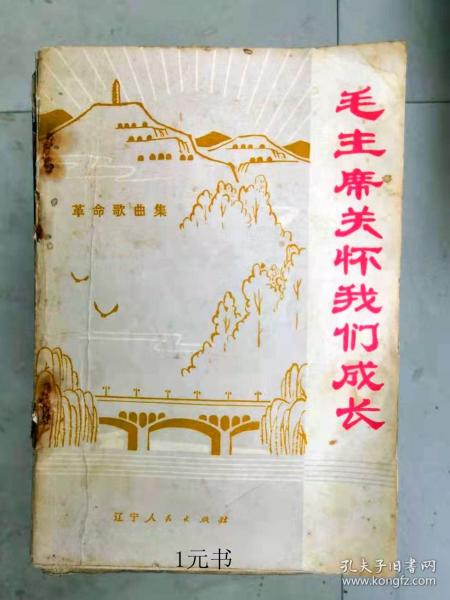 毛主席关怀我们成长
革命歌曲集
辽宁人民出版社
1元书
孔夫子旧书网
www.kongfz.com